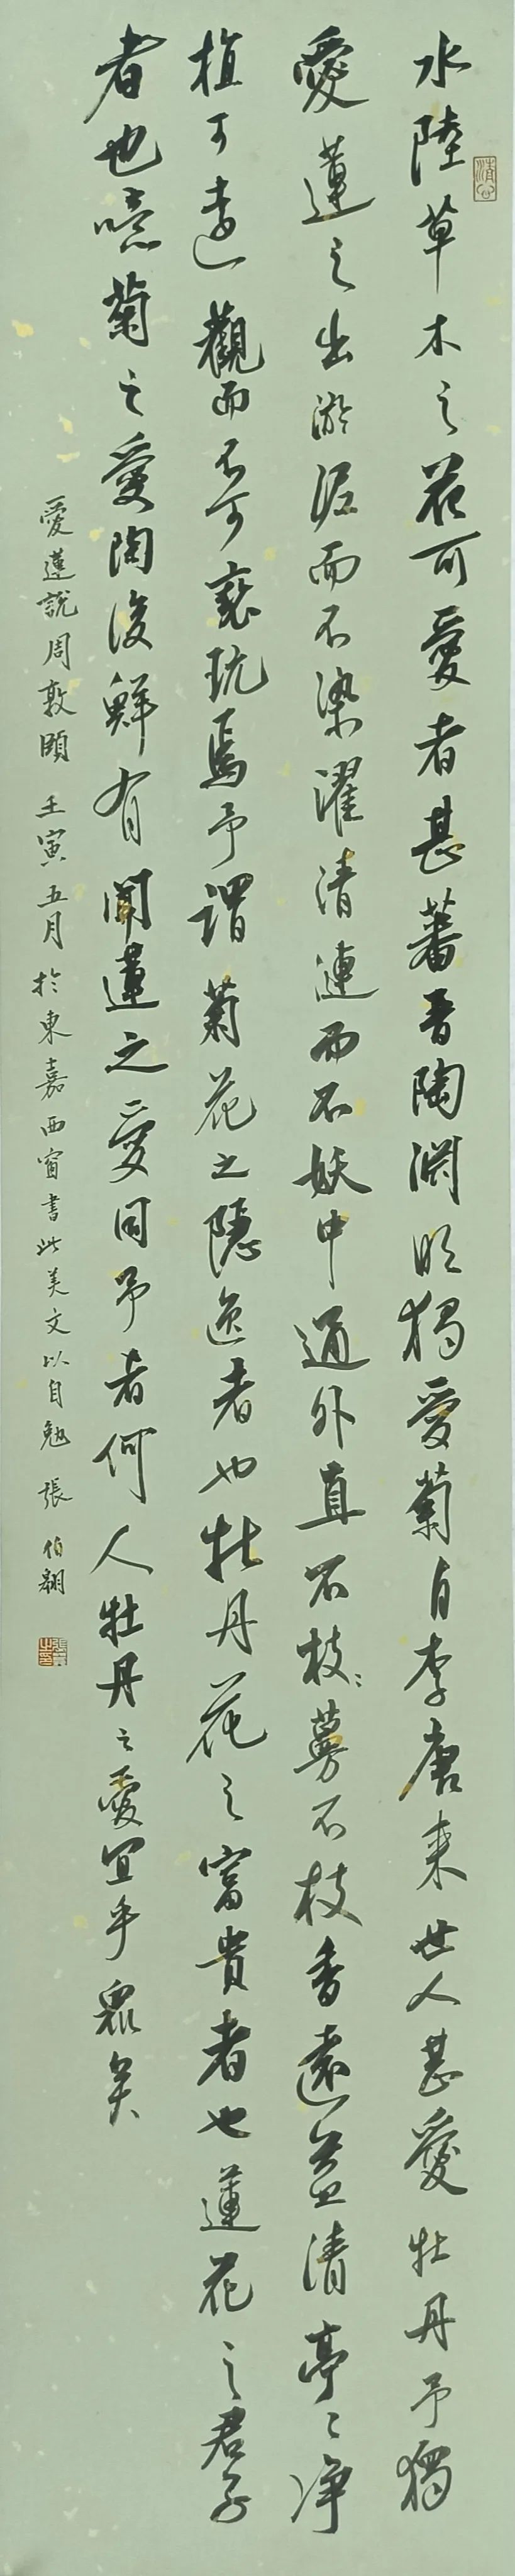 水陸草木之花可愛者甚蕃晉陶淵明獨愛菊自李唐來世人甚愛牡丹予獨
愛蓮之出淤泥而不染濯清漣而不妖中通外直不枝蔓不枝香遠益清亭〻净
植可遠觀而不可褻玩焉予謂菊花之隱逸者也牡丹花之富貴者也蓮花之君子
者也噫菊之愛陶後鮮有聞蓮之愛同予者何人牡丹之愛宜乎眾矣
愛蓮說周敦頤 壬寅五月於東嘉西窗書此美文以自勉 張伯翱